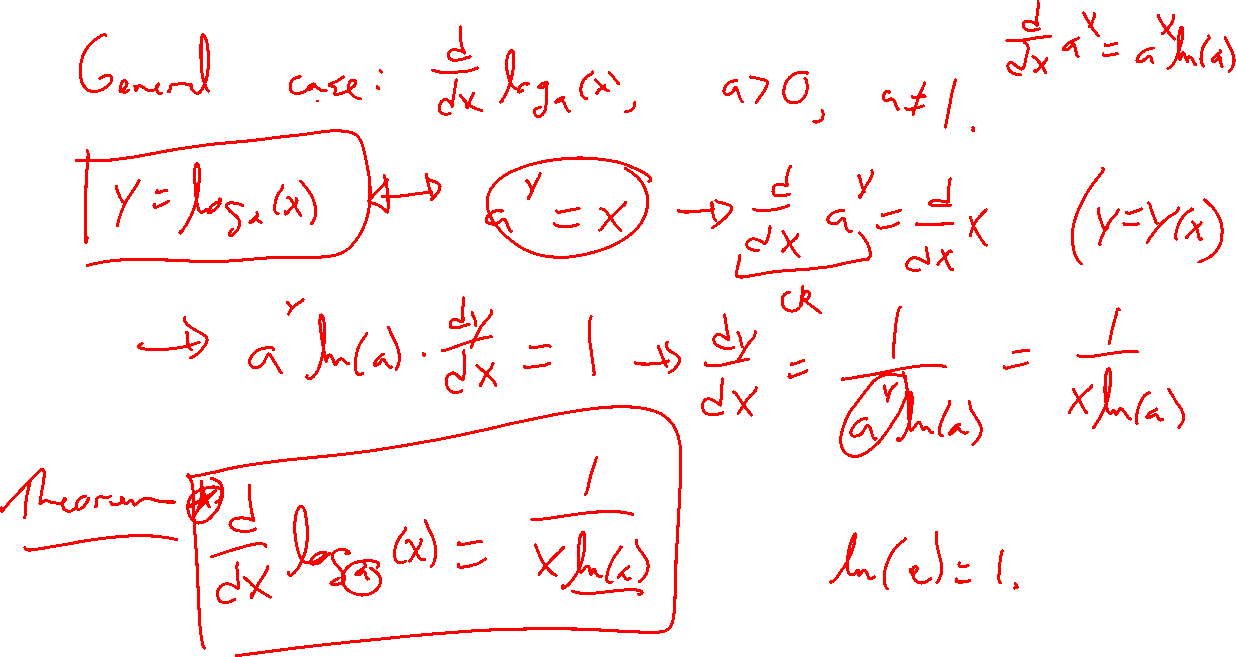 General case: d/dx log_a(x), a>0, a≠1.
d/dx a^x = a^x ln(a)
y = log_a(x) ↔ a^y = x → d/dx a^y = d/dx x (y=y(x))
CR
→ a^y ln(a) · dy/dx = 1 → dy/dx = 1/(a^y ln(a)) = 1/(x ln(a))
Theorem * d/dx log_a(x) = 1/(x ln(a))
ln(e) = 1.